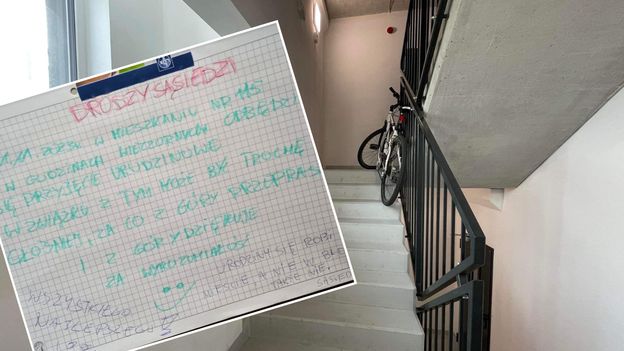 DRODZY SĄSIEDZI
W MIESZKANIU NR 115
W GODZINACH WIECZORNYCH ODBĘDZI
SIĘ PRZYJĘCIE URODZINOWE
W ZWIĄZKU Z TYM MOŻE BYĆ TROCHĘ
GŁOŚNIEJ, ZA CO Z GÓRY PRZEPRAS
I Z GÓRY DZIĘKUJE
ZA WYROZUMIAŁOŚĆ
URODZINY SIĘ ROBI
W BLO
WSZYSTKIEGO
NAJLEPSZEGO